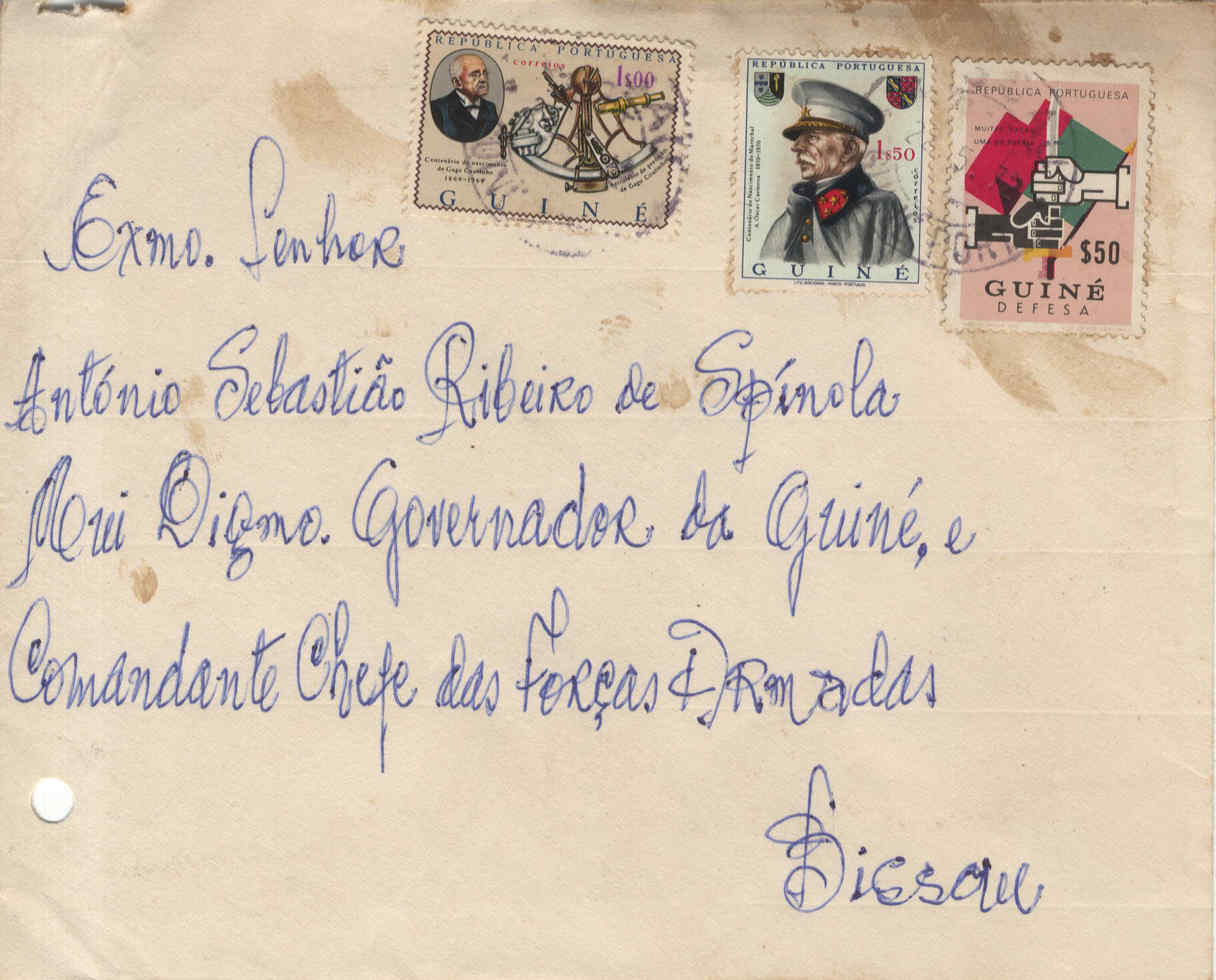 REPÚBLICA PORTUGUESA
correios
1$00
Centenário do nascimento
de Gago Coutinho
1869-1969
GUINÉ
REPÚBLICA PORTUGUESA
1$50
correios
Centenário do Nascimento do Marechal
A. Óscar Carmona 1869-1969
GUINÉ
REPÚBLICA PORTUGUESA
$50
GUINÉ
DEFESA
Exmo. Senhor
António Sebastião Ribeiro de Spínola
Mui Digmo. Governador da Guiné, e
Comandante Chefe das Forças Armadas
Bissau